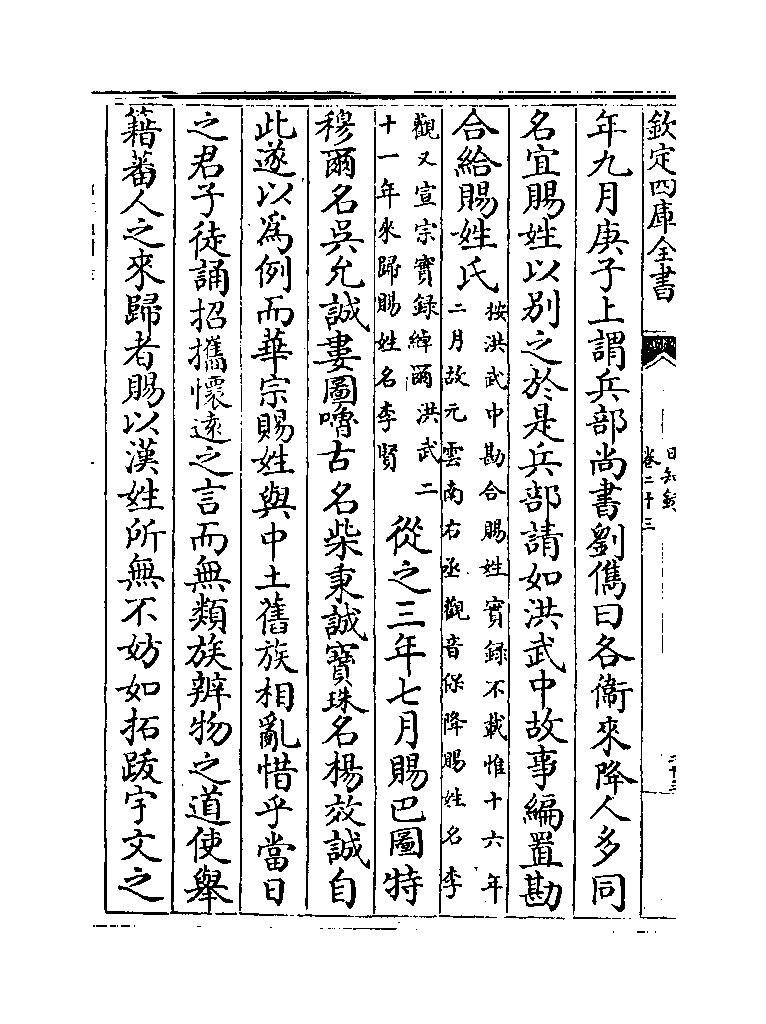 欽定四庫全書
日知錄
卷二十三
年九月庚子上謂兵部尚書劉儁曰各衞來降人多同
名宜賜姓以別之於是兵部請如洪武中故事編置勘
合給賜姓氏
按洪武中勘合賜姓實録不載惟十六年
二月故元雲南右丞觀音保降賜姓名李
觀又宣宗實録綽爾洪武二
十一年來歸賜姓名李賢
從之三年七月賜巴圖特
穆爾名吳允誠婁圖嚕古名柴秉誠寶珠名楊效誠自
此遂以為例而華宗賜姓與中土舊族相亂惜乎當日
之君子徒誦招攜懷遠之言而無類族辨物之道使舉
籍蕃人之來歸者賜以漢姓所無不妨如拓跋宇文之